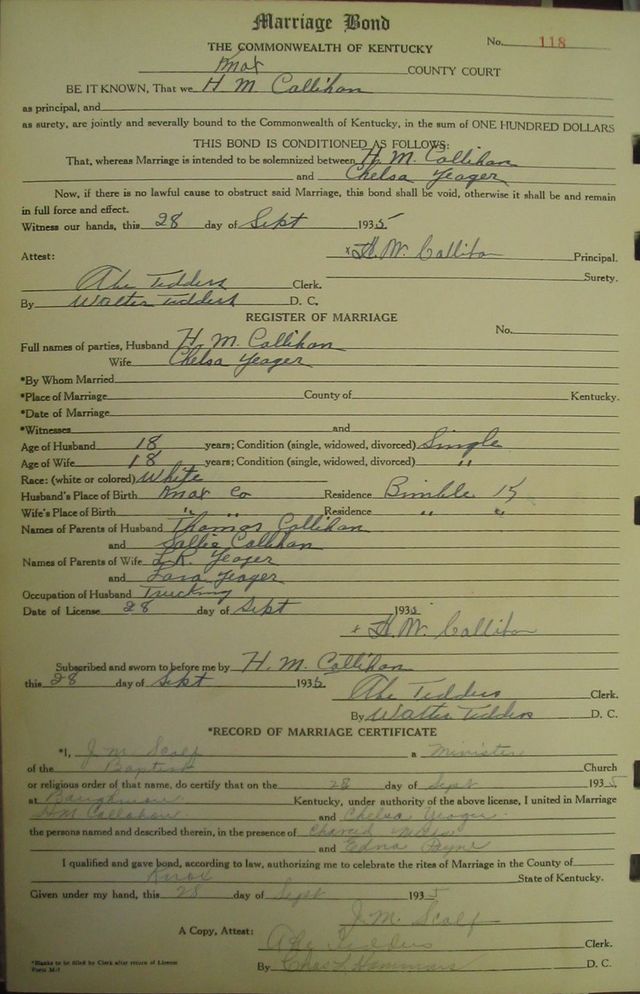 Marriage Bond
THE COMMONWEALTH OF KENTUCKY No. 118
Knox COUNTY COURT
BE IT KNOWN, That we H. M. Callihan
as principal, and
as surety, are jointly and severally bound to the Commonwealth of Kentucky, in the sum of ONE HUNDRED DOLLARS
THIS BOND IS CONDITIONED AS FOLLOWS:
That, whereas Marriage is intended to be solemnized between H. M. Callihan
and Chelsa Yeager
Now, if there is no lawful cause to obstruct said Marriage, this bond shall be void, otherwise it shall be and remain
in full force and effect.
Witness our hands, this 28 day of Sept 1935
Attest: x H. M. Callihan Principal.
Abe Tedders Clerk. Surety.
By Walter Tedders D. C.
REGISTER OF MARRIAGE
No.
Full names of parties, Husband H. M. Callihan
Wife Chelsa Yeager
*By Whom Married
*Place of Marriage County of Kentucky.
*Date of Marriage
*Witnesses and
Age of Husband 18 years; Condition (single, widowed, divorced) Single
Age of Wife 18 years; Condition (single, widowed, divorced) "
Race: (white or colored) White
Husband's Place of Birth Knox Co Residence Bimble Ky
Wife's Place of Birth " " Residence " "
Names of Parents of Husband Thomas Callihan
and Sallie Callihan
Names of Parents of Wife L. R. Yeager
and Yeager
Occupation of Husband Trucking
Date of License 28 day of Sept 1935
x H. M. Callihan
Subscribed and sworn to before me by H. M. Callihan
this 28 day of Sept 1935. Abe Tedders Clerk.
By Walter Tedders D. C.
*RECORD OF MARRIAGE CERTIFICATE
*I, J. M. Scalf a Minister
of the Baptist Church
or religious order of that name, do certify that on the 28 day of Sept 1935
at Baughman Kentucky, under authority of the above license, I united in Marriage
H M Callahan and Chelsa Yeager
the persons named and described therein, in the presence of
and Edna Payne
I qualified and gave bond, according to law, authorizing me to celebrate the rites of Marriage in the County of
Knox State of Kentucky.
Given under my hand, this 28 day of Sept 1935
J. M. Scalf
A Copy, Attest: Abe Tedders Clerk.
By Chas L Hammons D. C.
*Blanks to be filled by Clerk after return of License
Form M-1